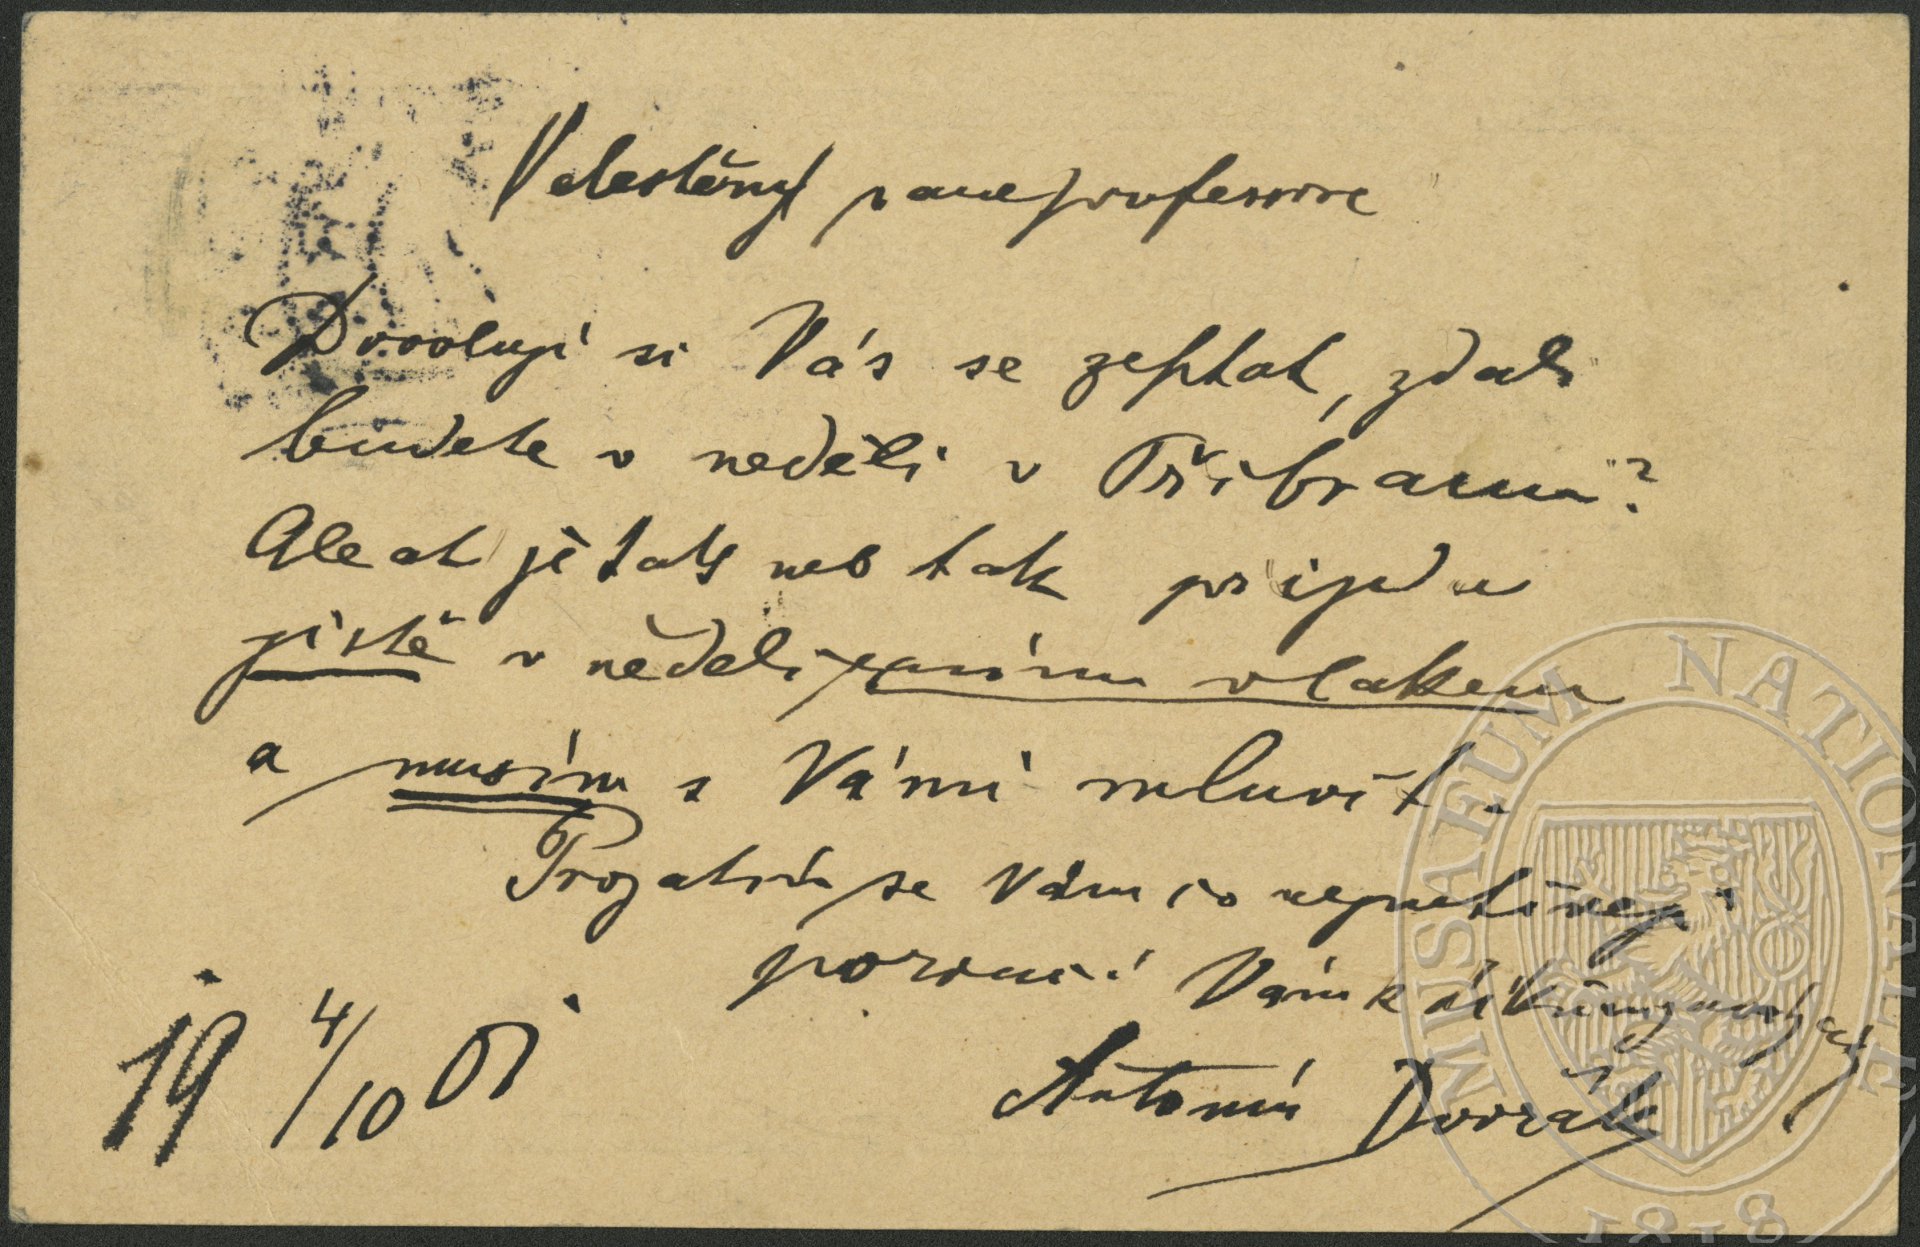 Velectěný pane professore
Dovoluji si Vás se zeptat, zdali
budete v neděli v Příbrami?
Ale ať je tak neb tak přijedu
jistě v neděli ranním vlakem
a musím s Vámi mluvit.
Prozatím se Vám co nejuctivěji
poroučí Vám k díkům zavázaný
Antonín Dvořák
19 4/10 01
MUSAEUM NATIONALE
1818